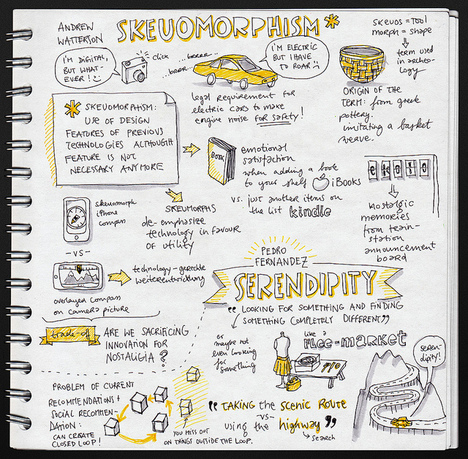 ANDREW
WATTERSON
SKEUOMORPHISM*
I'M DIGITAL,
BUT WHAT-
EVER!
click
brrr...
brrr...
I'M ELECTRIC
BUT I HAVE
TO ROAR
SKEUOS = TOOL
morph = shape
term used
in archeo-
logy
ORIGIN OF THE
TERM: from greek
pottery
imitating a basket
weave.
legal requirement for
electric cars to make
engine noise for safety!
* SKEUOMORPHISM:
USE OF DESIGN
FEATURES OF PREVIOUS
TECHNOLOGIES ALTHOUGH
FEATURE IS NOT
NECESSARY ANYMORE
BOOK
emotional
satisfaction
when adding a book
to your shelf iBooks
vs. just another items on
the list kindle
nostalgic
memories
from train-
station
announcement
board
SKEUOMORPHS
de-emphasize
technology in favour
OF utility
skeuomorph
iPhone
compass
-VS-
overlayed compass
on camera picture
technology-gerechte
weiterentwicklung
trade-of
ARE WE SACRIFICING
INNOVATION FOR
NOSTALGIA?
PEDRO
FERNANDEZ
SERENDIPITY
"LOOKING FOR SOMETHING AND FINDING
SOMETHING COMPLETELY DIFFERENT"
or maybe
not even
looking
for
something
like a
flee-market
seren-
dipity!
PROBLEM OF CURRENT
RECOMMENDATIONS +
SOCIAL RECOMMEN-
DATION:
CAN CREATE
CLOSED LOOP!
YOU MISS OUT
ON THINGS OUTSIDE THE LOOP.
"TAKING THE SCENIC ROUTE
-VS-
using the highway"
search